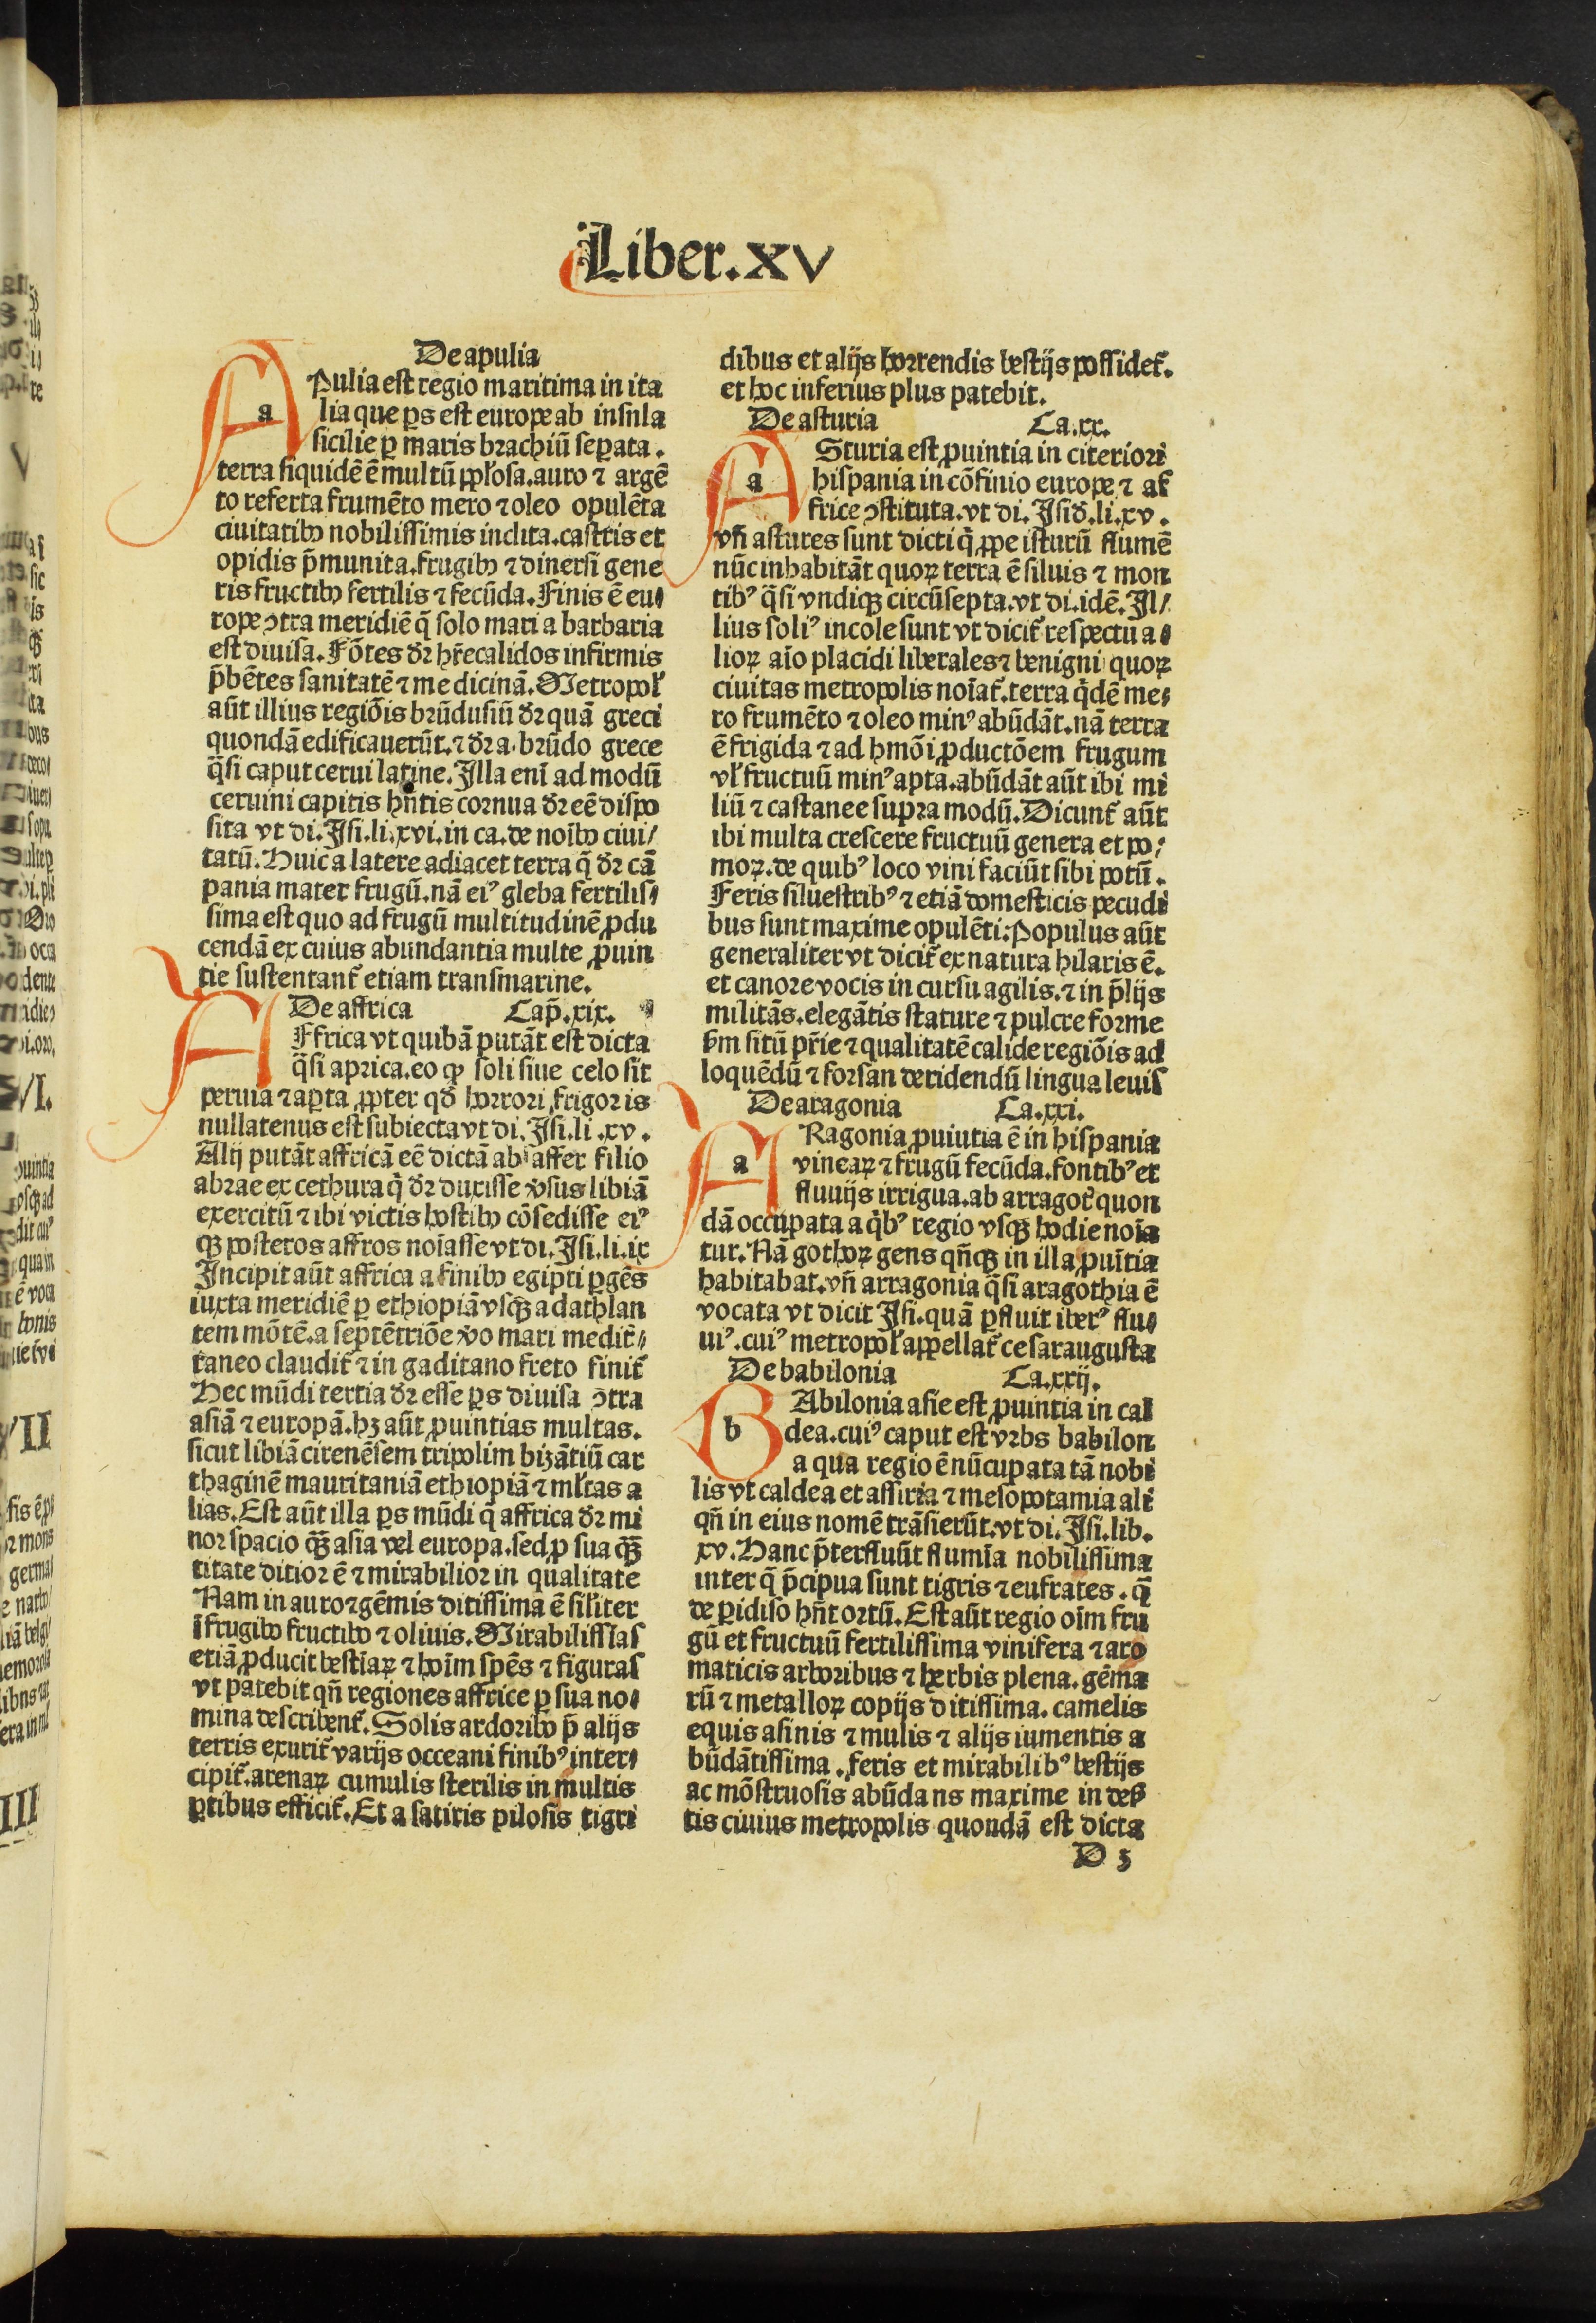 Liber.xv
De apulia
Apulia est regio maritima in ita
lia que ꝑs est europe ab insnla
sicilie ꝑ maris brachiū seꝑata.
terra siquidē ē multū pp̄losa.auro ⁊ argē
to referta frumēto mero ⁊ oleo opulēta
ciuitatibꝰ nobilissimis inclita.castris et
opidis p̄munita.frugibꝰ ⁊ dinersi gene
ris fructibꝰ fertilis ⁊ fecūda.Finis ē eu/
rope ↄtra meridiē q̄ solo mari a barbaria
est diuisa.Fōtes dr̄ hr̄e calidos infirmis
p̄bētes sanitatē ⁊ medicinā.Metropol̄
aūt illius regiōis brūdusiū dr̄ quā greci
quondā edificauerūt.⁊ dr̄ a.brūdo grece
q̄si caput cerui latine.Illa eni ad modū
ceruini capitis hn̄tis cornua dr̄ eē dispo
sita vt di.Isi.li.xvi.in ca.de noibꝰ ciui/
tatū.Huic a latere adiacet terra q̄ dr̄ cā
pania mater frugū.nā eiꝰ gleba fertilis/
sima est quo ad frugū multitudinē ꝓdu
cendā ex cuius abundantia multe ꝓuin
tie sustentant̄ etiam transmarine.
De affrica Cap̄.xix.
Affrica vt quibā putāt est dicta
q̄si aprica.eo ꝙ soli siue celo sit
peruia ⁊ aꝑta ꝓpter qd̄ horrori frigoris
nullatenus est subiecta vt di.Isi.li.xv.
Alij putāt affricā eē dictā ab affer filio
abrae ex cethura q̄ dr̄ duxisse v̄sus libiā
exercitū ⁊ ibi victis hostibꝰ cōsedisse eiꝰ
qꝫ posteros affros noiasse vt di.Isi.li.ix
Incipit aūt affrica a finibꝰ egipti ꝑgēs
iuxta meridiē ꝑ ethiopiā vsqꝫ ad athlan
tem mōtē.a septētriōe v̄o mari medit̄/
taneo claudit̄ ⁊ in gaditano freto finit̄
Hec mūdi tertia dr̄ esse ꝑs diuisa ↄtra
asiā ⁊ europā.hꝫ aūt ꝓuintias multas.
sicut libiā cirenēsem tripolim bizātiū car
thaginē mauritaniā ethiopiā ⁊ ml̄tas a
lias.Est aūt illa ꝑs mūdi q̄ affrica dr̄ mi
nor spacio qꝫ̄ asia vel europa.sed ꝓ sua qꝫ̄
titate ditior ē ⁊ mirabilior in qualitate
Nam in auro ⁊ gēmis ditissima ē sil̄iter
ī frugibꝰ fructibꝰ ⁊ oliuis.Mirabilissīas
etiā ꝓducit bestiaꝝ ⁊ hoīm spēs ⁊ figuras
vt patebit qn̄ regiones affrice ꝑ sua no/
mina describent̄.Solis ardoribꝰ p̄ alijs
terris exurit̄ varijs occeani finibꝰ inter/
cipit̄.arenaꝝ cumulis sterilis in multis
ꝑtibus efficit̄.Et a satiris pilosis tigri
dibus et alijs horrendis bestijs possidet̄.
et hoc inferius plus patebit.
De asturia Ca.xx.
Asturia est ꝓuintia in citeriori
hispania in cōfinio europe ⁊ af
frice ↄstituta.vt di.Isid̄.li.xv.
vn̄ astures sunt dicti q̄ ꝓpe isturū flumē
nūc inhabitāt quoꝝ terra ē siluis ⁊ mon
tibꝰ q̄si vndiqꝫ circūsepta.vt di.idē.Il/
lius soliꝰ incole sunt vt dicit̄ respectu a/
lioꝝ aīo placidi liberales ⁊ benigni quoꝝ
ciuitas metropolis noiat̄.terra q̄dē me/
ro frumēto ⁊ oleo minꝰ abūdāt.nā terra
ē frigida ⁊ ad hmōi ꝓductōem frugum
vl̄ fructuū minꝰ apta.abūdāt aūt ibi mi
liū ⁊ castanee supra modū.Dicunt̄ aūt
ibi multa crescere fructuū genera et po/
moꝝ.de quibꝰ loco vini faciūt sibi potū.
Feris siluestribꝰ ⁊ etiā domesticis pecudi
bus sunt maxime opulēti:Populus aūt
generaliter vt dicit̄ ex natura hilaris ē.
et canore vocis in cursu agilis.⁊ in p̄lijs
militās.elegātis stature ⁊ pulcre forme
ẜm sitū pr̄ie ⁊ qualitatē calide regiōis ad
loquēdū ⁊ forsan deridendū lingua leuis
De aragonia Ca.xxi.
ARagonia ꝓuiutia ē in hispania
vineaꝝ ⁊ frugū fecūda.fontibꝰ et
fluuijs irrigua.ab arragot̄ quon
dā occupata a q̄bꝰ regio vsqꝫ hodie noīa
tur.Nā gothoꝝ gens qn̄qꝫ in illa ꝓuītia
habitabat.vn̄ arragonia q̄si aragothia ē
vocata vt dicit Isi.quā ꝑfluit iberꝰ flu/
uiꝰ.cuiꝰ metropol̄ appellat̄ cesaraugusta
De babilonia Ca.xxij.
BAbilonia asie est ꝓuintia in cal
dea.cuiꝰ caput est vrbs babilon
a qua regio ē nūcupata tā nobi
lis vt caldea et assiria ⁊ mesopotamia ali
qn̄ in eius nomē trāsierūt.vt di.Isi.lib.
xv.Hanc p̄terfluūt flumīa nobilissima
inter q̄ p̄cipua sunt tigris ⁊ eufrates.q̄
de ꝑidiso hn̄t ortū.Est aūt regio oīm fru
gū et fructuū fertilissima vinifera ⁊ aro
maticis arboribus ⁊ herbis plena.gēma
rū ⁊ metalloꝝ copijs ditissima.camelis
equis asinis ⁊ mulis ⁊ alijs iumentis a
būdātissima.feris et mirabilibꝰ bestijs
ac mōstruosis abūdans maxime in deẜ
tis ciuius metropolis quondā est dicta
D 5